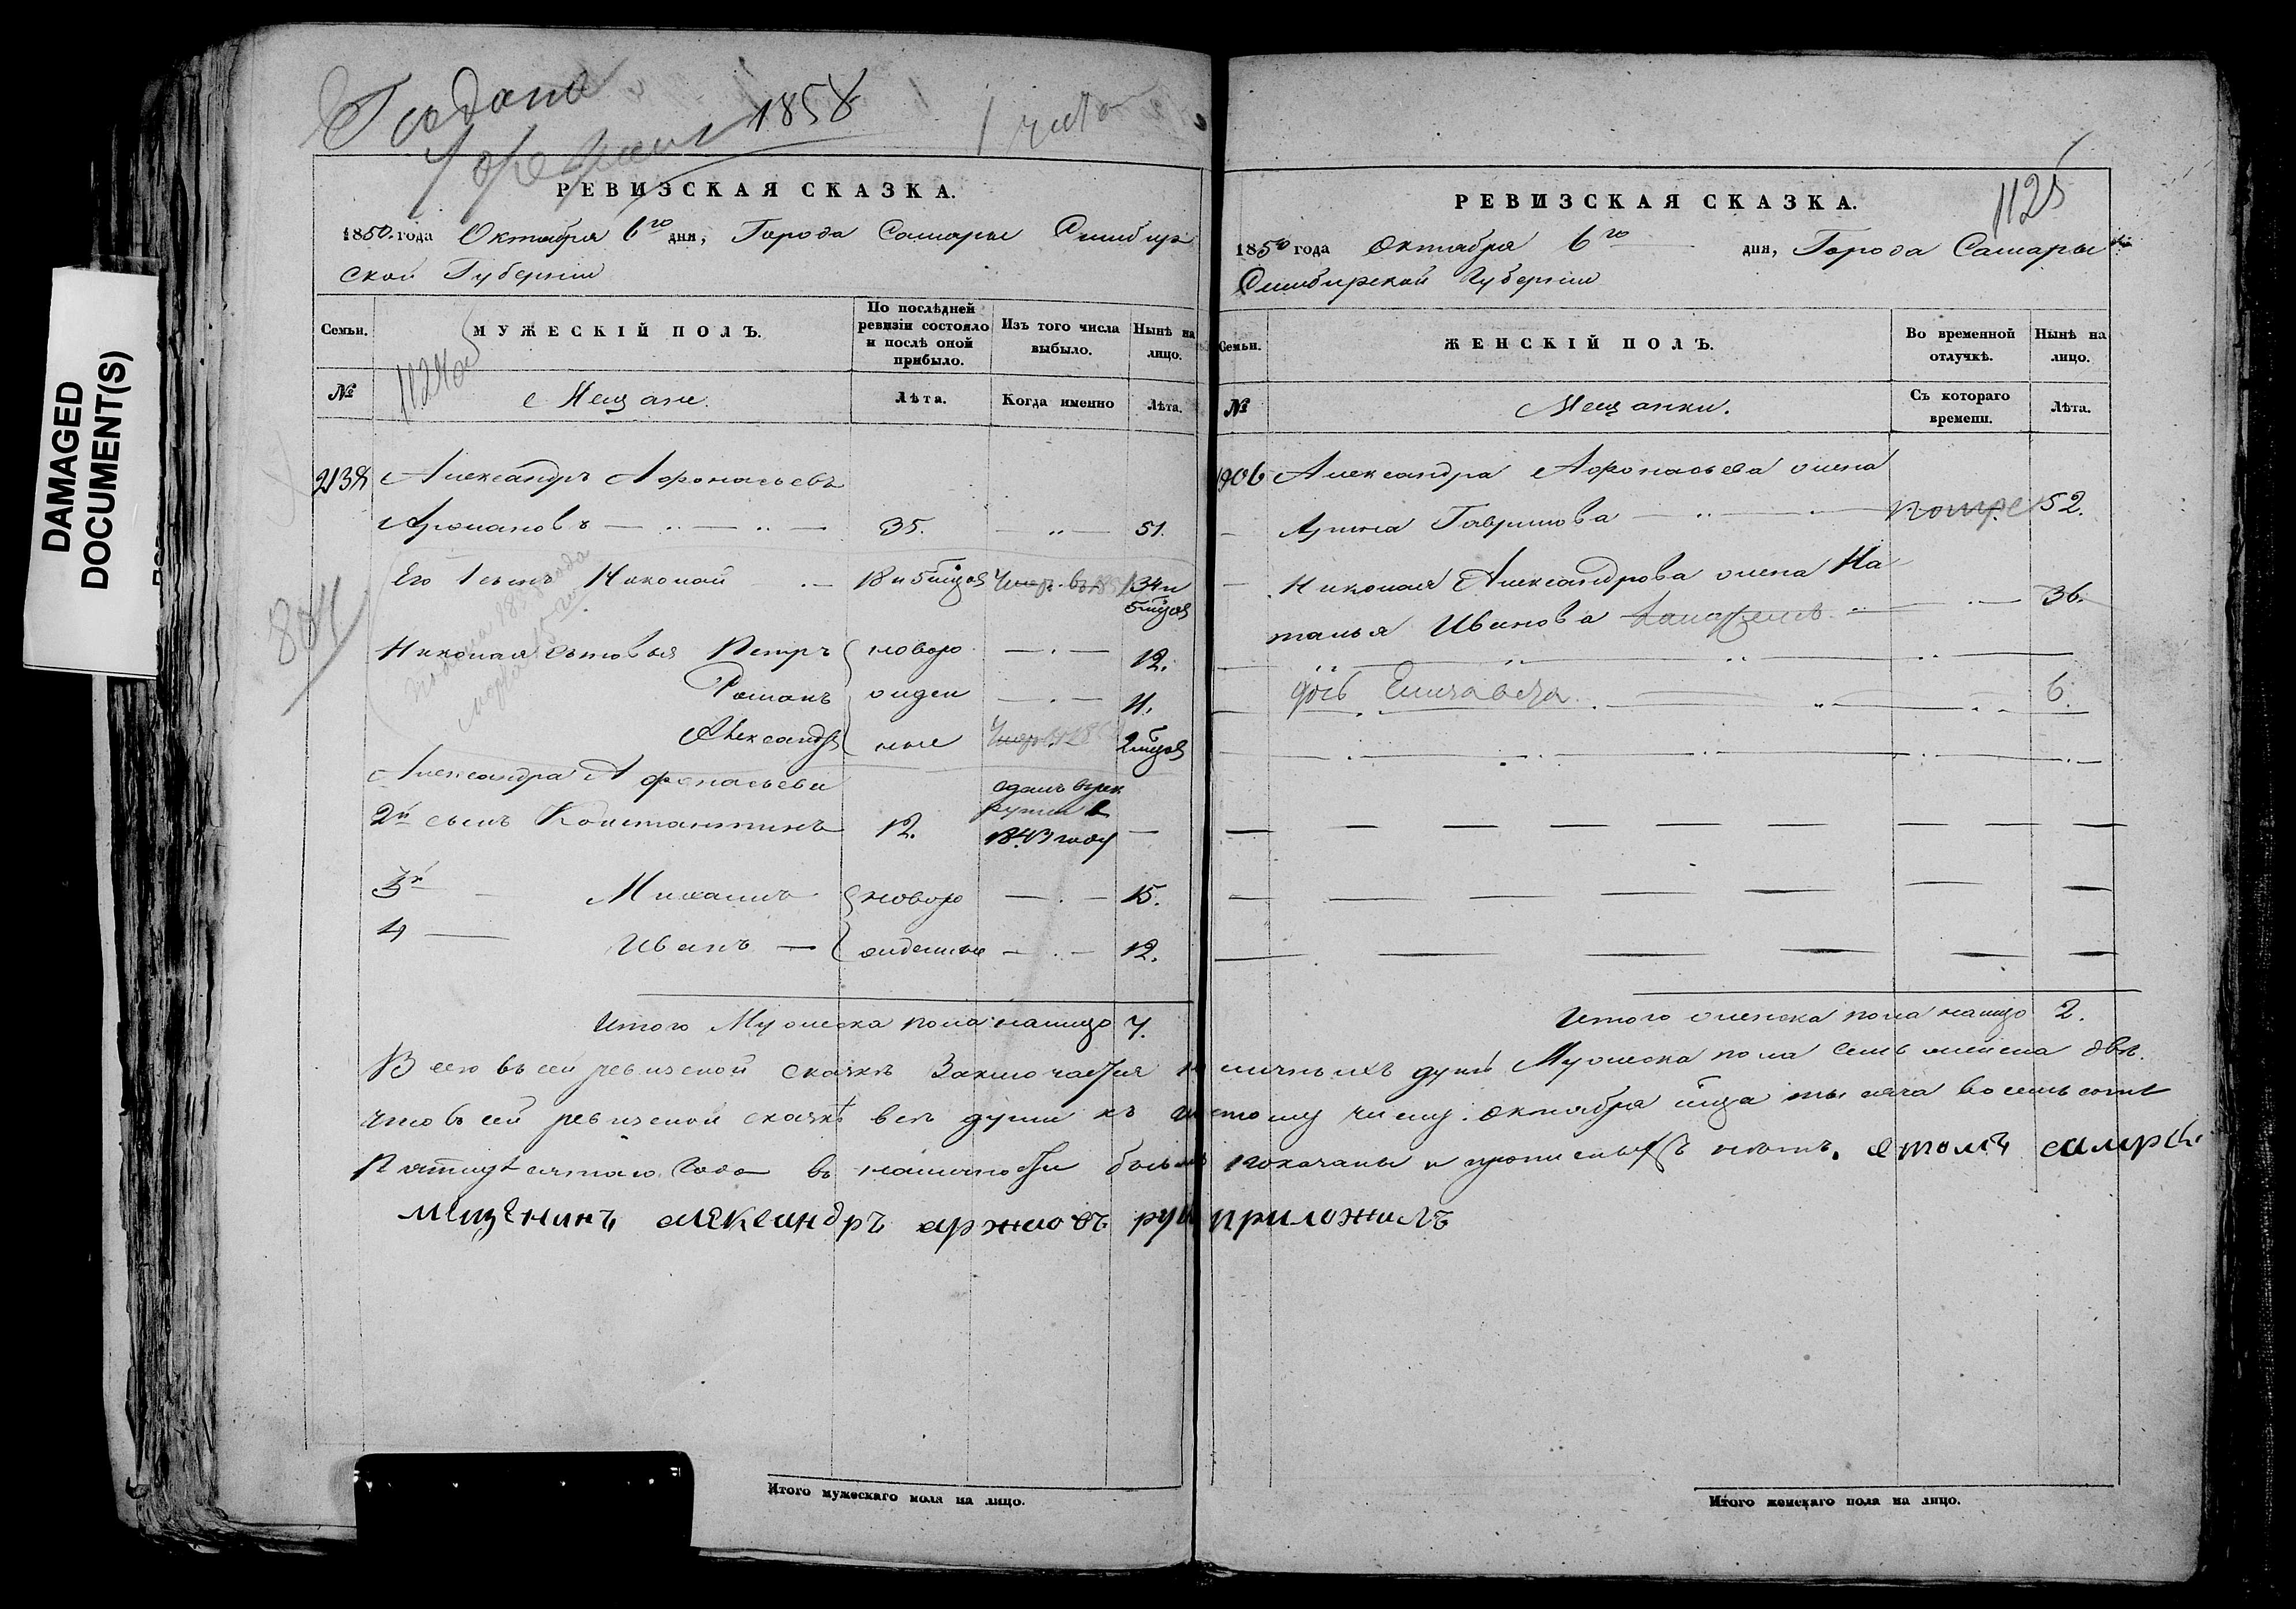 DAMAGED
DOCUMENT(S)
1858
РЕВИЗСКАЯ СКАЗКА.
1850 года Октября 6го дня, Города Самары Симбир
ской Губернии
Семьи.
МУЖЕСКІЙ ПОЛЪ.
По послѣдней ревизіи состояло и послѣ оной прибыло.
Изъ того числа выбыло.
Нынѣ на лицо.
№
Мещане.
Лѣта.
Когда именно
Лѣта.
Александръ Афонасьевъ
35. 51.
Его 1 сынъ Николай 18 и 5 мцов 34 и
5 мцов
Николая сыновья Петръ новоро 12.
Романъ жден 11.
Александръ ные 2 мцов
Александра Афонасьева
2й сынъ Константинъ 12. отданъ въ рек
руты в
1843 году
3й Михаилъ новоро 15.
4 Иванъ жденные 12.
Итого Мужеска пола налицо 7.
Итого мужескаго пола на лицо.
1125
РЕВИЗСКАЯ СКАЗКА.
1850 года Октября 6го дня, Города Самары
Симбирской Губернии
Семьи.
ЖЕНСКІЙ ПОЛЪ.
Во временной отлучкѣ.
Нынѣ на лицо.
№
Мещанки.
Съ котораго времени.
Лѣта.
Александра Афонасьева жена
Гаврилова 52.
Николая Александрова жена На
талья Иванова 36.
дочь Елизавета 6.
Итого женска пола налицо 2.
Всего въ сей ревизской сказкѣ Заключается наличныхъ душъ Мужеска пола семь женска двѣ.
что въ сей ревизской сказкѣ всѣ души къ шестому числу Октября мца тысяча восемьсотъ
Пятидесятаго Года въ наличности бывшіе показаны и прописныхъ нѣтъ. в томъ самрс
мещенинъ александръ руку приложилъ
Итого женскаго пола на лицо.